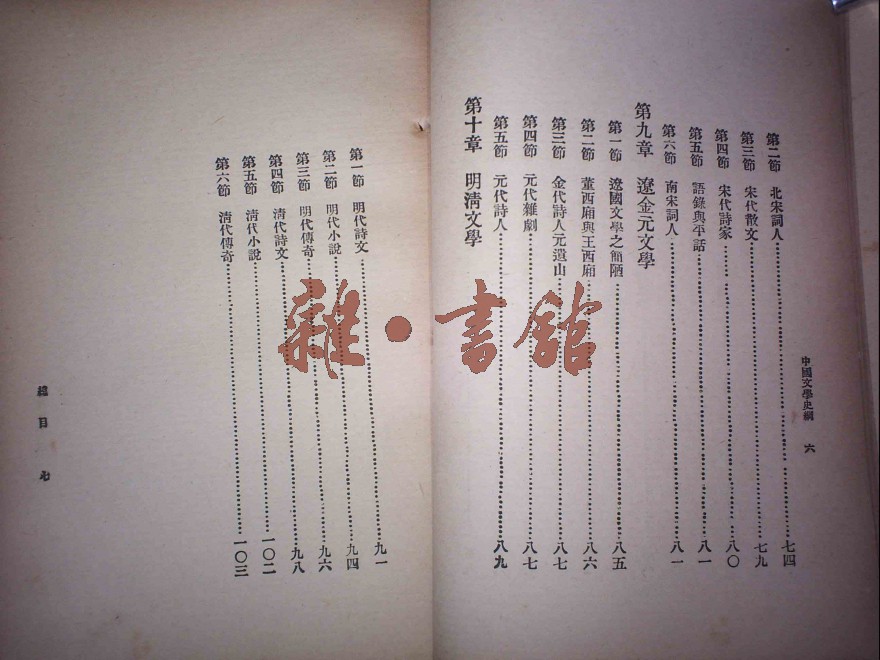 中國文學史綱 六
第二節 北宋詞人……七四
第三節 宋代散文……七九
第四節 宋代詩家……八〇
第五節 語錄與平話……八一
第六節 南宋詞人……八一
第九章 遼金元文學
第一節 遼國文學之簡陋……八五
第二節 董西廂與王西廂……八六
第三節 金代詩人元遺山……八七
第四節 元代雜劇……八七
第五節 元代詩人……八九
第十章 明清文學
第一節 明代詩文……九一
第二節 明代小說……九四
第三節 明代傳奇……九六
第四節 清代詩文……九八
第五節 清代小說……一〇二
第六節 清代傳奇……一〇三
總目 七
雜·書館